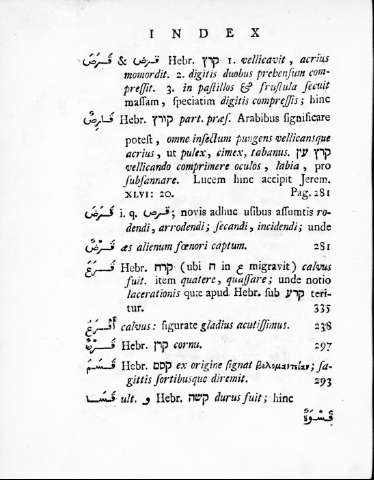 INDEX
قَرَصَ & قرض Hebr. קרץ 1. vellicavit, acrius
momordit. 2. digitis duobus prehensum com-
pressit. 3. in pastillos & frustula secuit
massam, speciatim digitis compressis; hinc
قَارِصٌ Hebr. קורץ part. præs. Arabibus significare
potest, omne insectum pungens vellicansque
acrius, ut pulex, cimex, tabanus. קרץ עין
vellicando comprimere oculos, labia, pro
subsannare. Lucem hinc accipit Jerem.
XLVI: 20. Pag. 281
قَرَضَ i. q. قرص; novis adhuc usibus assumtis ro-
dendi, arrodendi; secandi, incidendi; unde
قَرْضٌ æs alienum fœnori captum. 281
قَرَعَ Hebr. קרח (ubi ח in ع migravit) calvus
fuit. item quatere, quassare; unde notio
lacerationis quæ apud Hebr. sub קרע teri-
tur. 335
أَقْرَعُ calvus: figurate gladius acutissimus. 238
قَرْنٌ Hebr. קרן cornu. 297
قَسَمَ Hebr. קסם ex origine signat βελομαντίαν; sa-
gittis fortibusque diremit. 293
قَسَا ult. و Hebr. קשה durus fuit; hinc
قَسْوَةٌ